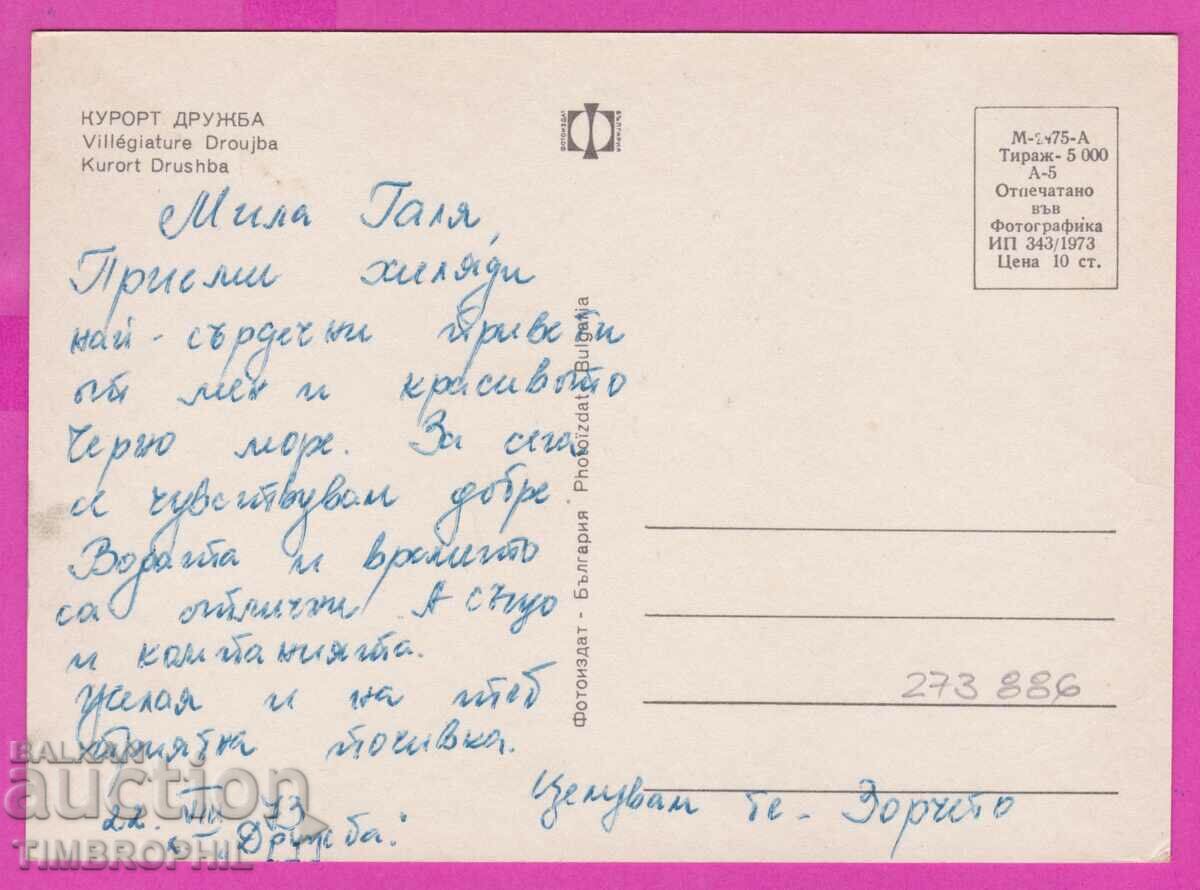 КУРОРТ ДРУЖБА
Villégiature Droujba
Kurort Drushba
ФОТОИЗДАТ
БЪЛГАРИЯ
М-2475-А
Тираж- 5 000
А-5
Отпечатано
във
Фотографика
ИП 343/1973
Цена 10 ст.
Мила Галя,
Приеми хиляди
най-сърдечни привети
от мен и красивото
Черно море. За сега
се чувствувам добре
Водата и времето
са отлични. А също
и компанията.
Желая и на теб
приятна почивка.
Целувам те - Зорчето
22. VIII 73
"Дружба"
Фотоиздат - България Photoizdat Bulgaria
273 886
BALKAN
auction
TIMBROPHIL